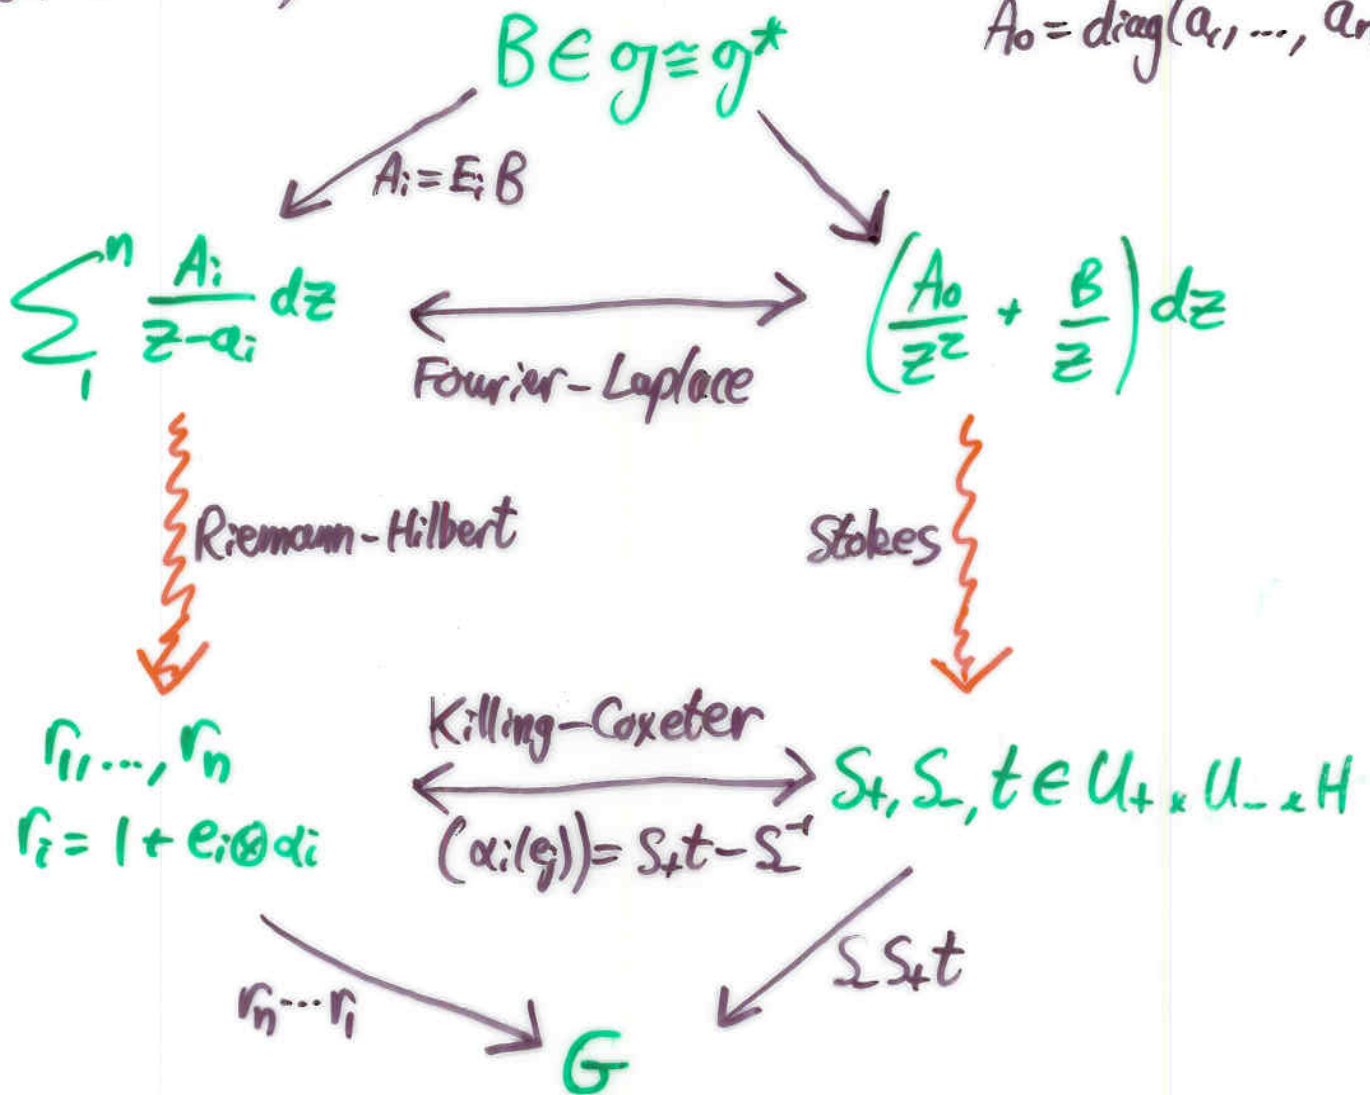 A₀ = diag(a₁, ...,
B ∈ g ≅ g*
Aᵢ = EᵢB
∑₁ⁿ Aᵢ/(z-aᵢ) dz
(A₀/z² + B/z) dz
Fourier-Laplace
Riemann-Hilbert
Stokes
r₁, ..., rₙ
rᵢ = 1 + eᵢ⊗αᵢ
Killing-Coxeter
(αᵢ(eⱼ)) = S₊t - S₋⁻¹
S₊, S₋, t ∈ U₊ × U₋ × H
rₙ ··· r₁
S₋S₊t
G